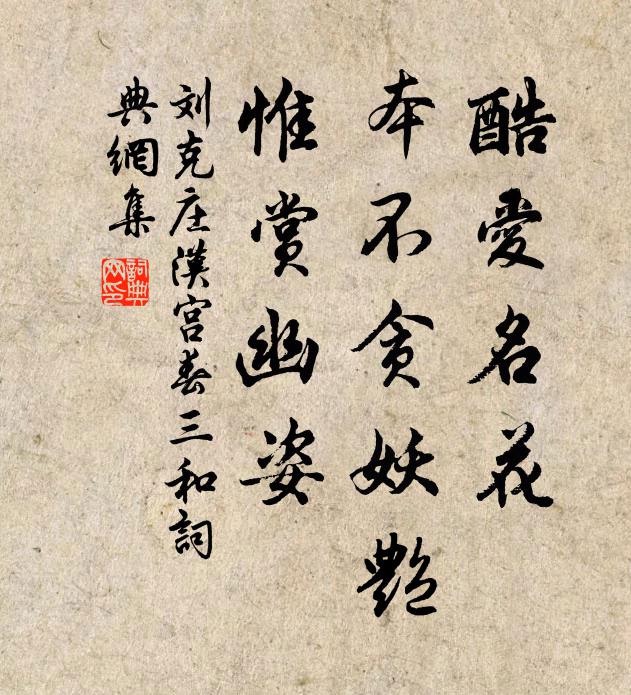 酷愛名花
本不貪妖艷
惟賞幽姿
刘克庄漢宫春三和詞
典網集
詞典网印